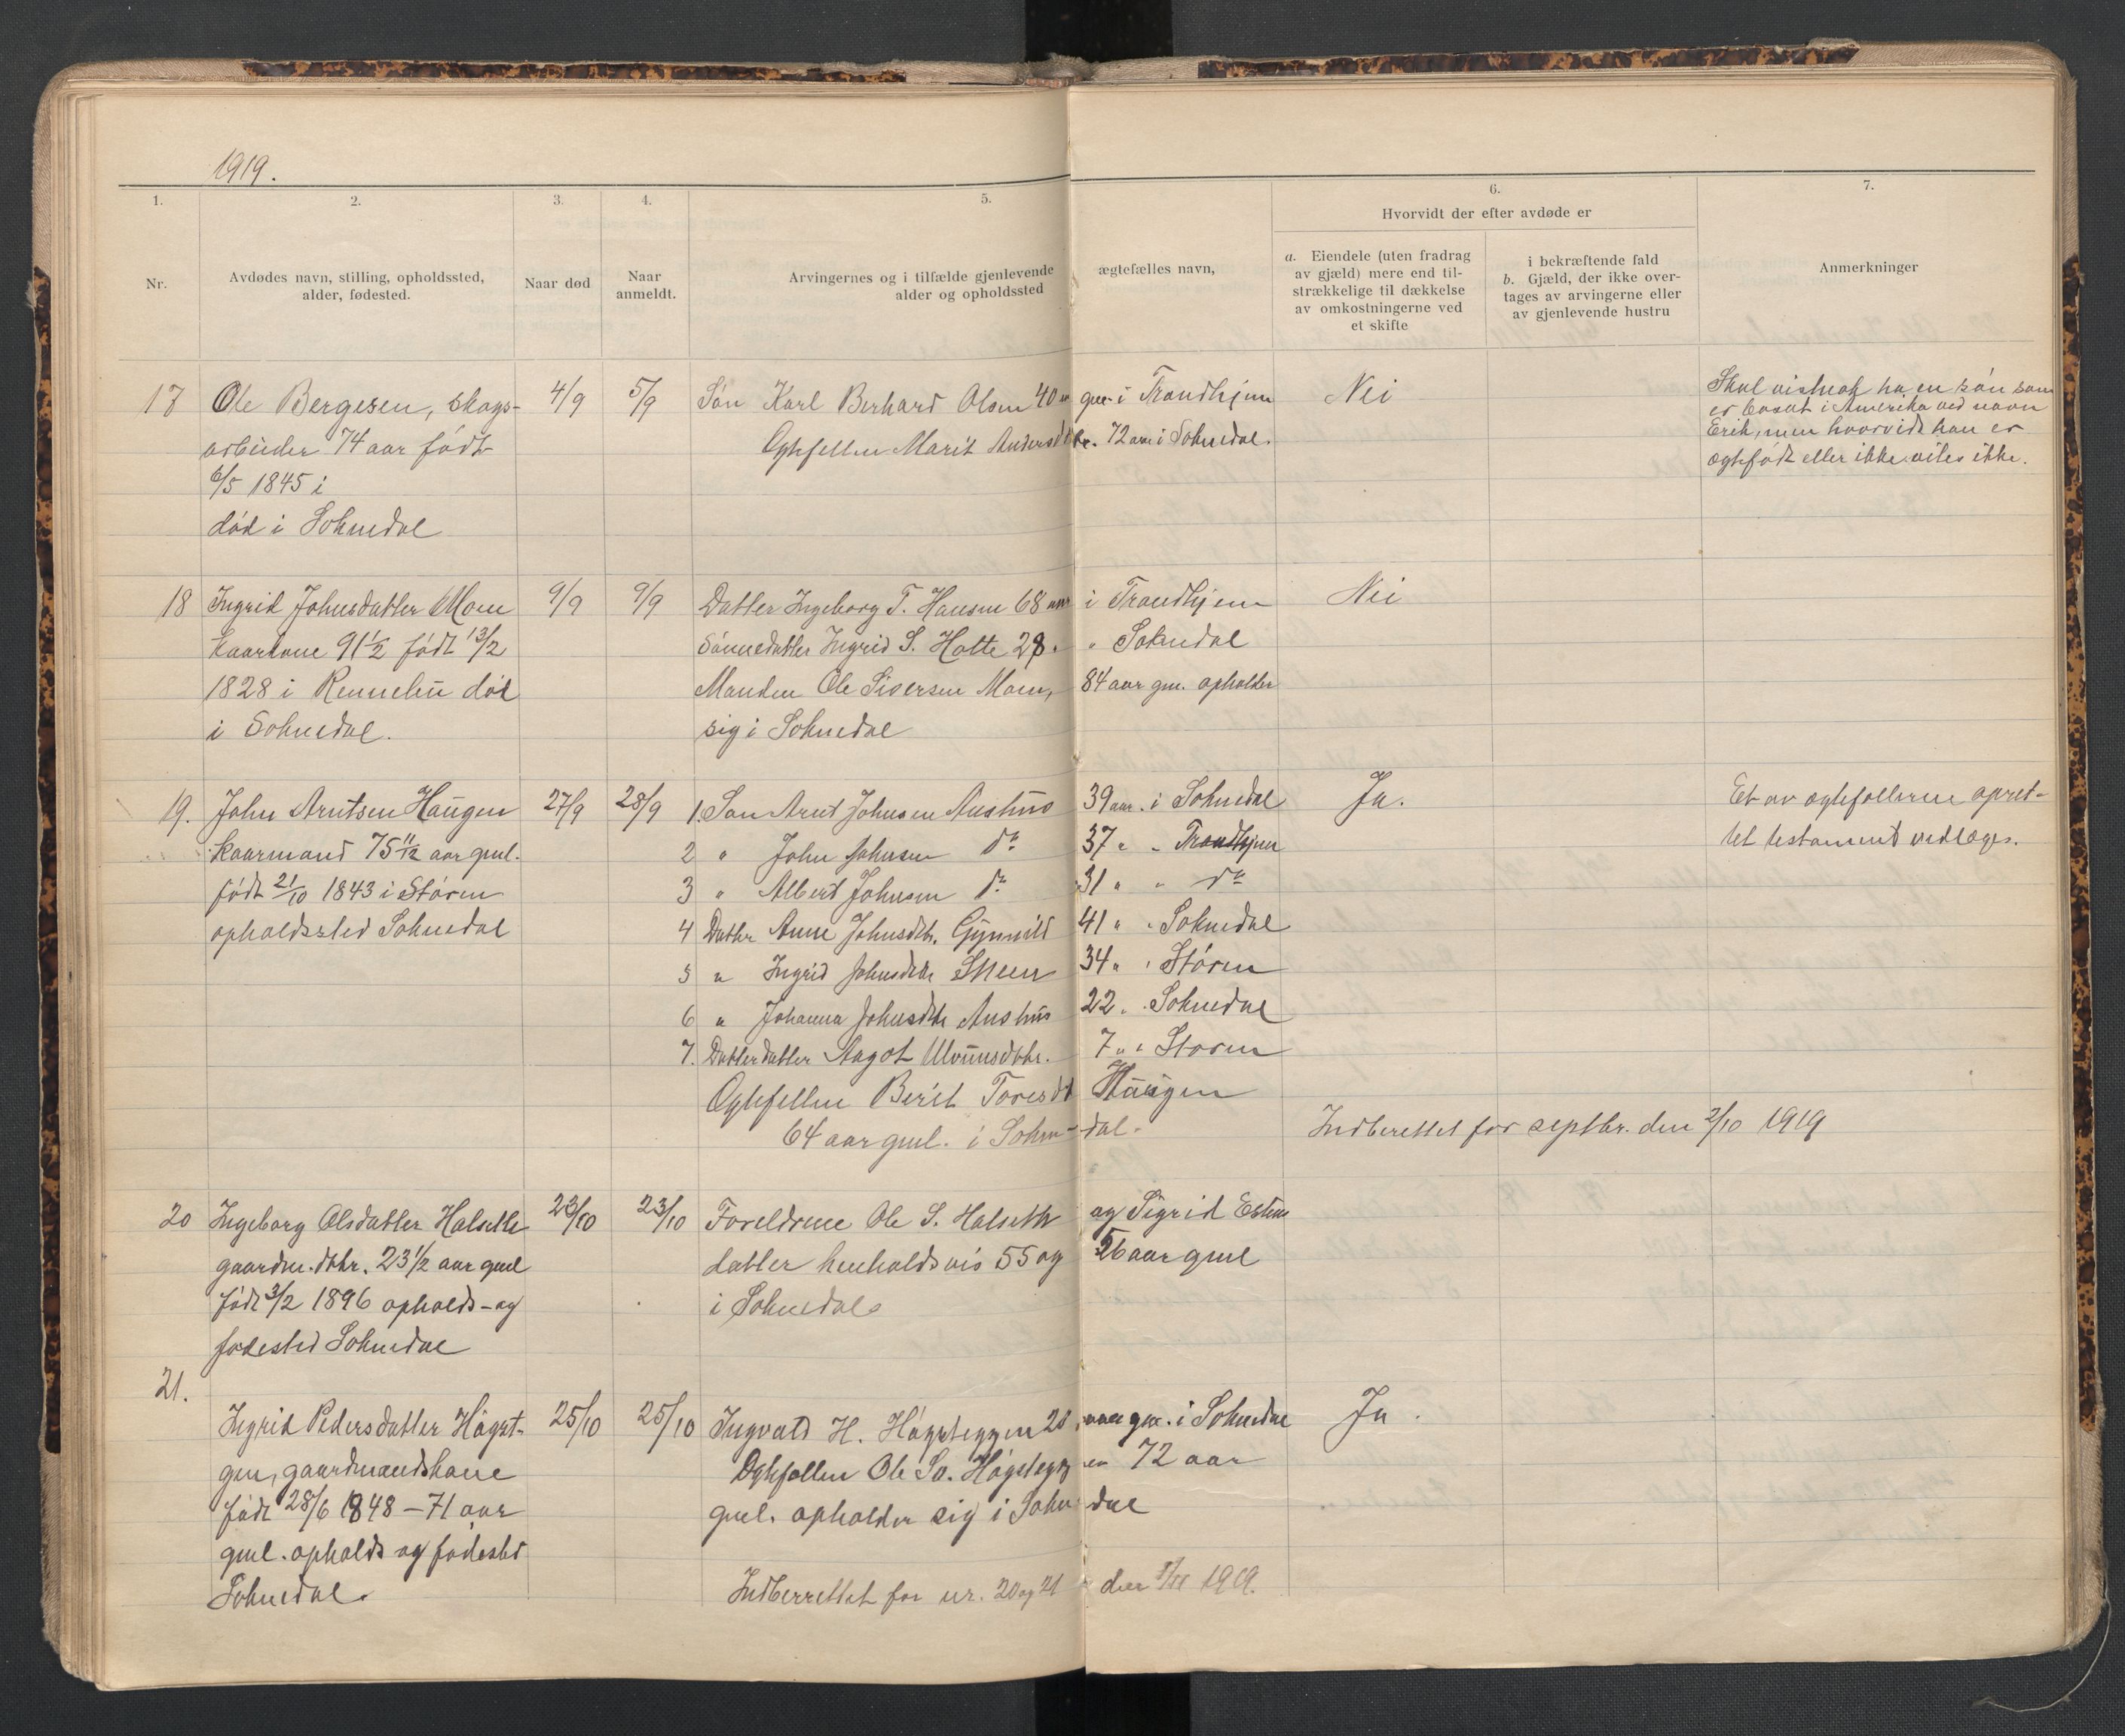 1919.
1.
2.
3.
4.
5.
6.
7.
Nr.
Avdødes navn, stilling, opholdssted,
alder, fødested.
Naar død
Naar
anmeldt.
Arvingernes og i tilfælde gjenlevende ægtefælles navn,
alder og opholdssted
Hvorvidt der efter avdøde er
a. Eiendele (uten fradrag
av gjæld) mere end til-
strækkelige til dækkelse
av omkostningerne ved
et skifte
i bekræftende fald
b. Gjæld, der ikke over-
tages av arvingerne eller
av gjenlevende hustru
Anmerkninger
17
Ole Bergesen, skogs-
arbeider 74 aar født
6/5 1845 i
død i Soknedal
4/9
5/9
Søn Karl Berhard Olsen 40 aar gml. i Trondhjem
Ogtefellen Marit Andersdtr. 72 aar i Soknedal.
Nei
Skal visnok ha en søn som
er bosat i Amerika ved navn
Erik, men hvorvidt han er
ogtefødt eller ikke vites ikke.
18
Ingrid Johnsdatter Moen
kaarkone 91 1/2 født 13/2
1828 i Rennebu død
i Soknedal.
9/9
9/9
Datter Ingeborg T. Hansen 68 aar i Trondhjem
Sønnedatter Ingrid S. Holte 28 " " Soknedal
Manden Ole Siversen Moen, 84 aar gml. opholder
sig i Soknedal
Nei
19.
John Arntsen Haugen
kaarmand 75 11/12 aar gml.
født 21/10 1843 i Støren
opholdssted Soknedal
27/9
28/9
1. Søn Arnt Johnsen Aushus 39 aar i Soknedal
2 " John Johnsen do 37 " " Trondhjem
3 " Albert Johnsen do 31 " " do
4 Datter Anne Johnsdtr. Gynnild 41 " " Soknedal
5 " Ingrid Johnsdtr Steen 34 " " Støren
6 " Johanna Johnsdtr Aushus 22 " " Soknedal
7. Datterdatter Aagot Mounsdtr. 7 " " Støren
Ogtefellen Berit Toresdt Haugen
64 aar gml. i Soknedal.
Ja.
Et av ogtefollerne opret-
tet testament vedlæges.
Indberettet for septbr. den 2/10 1919
20
Ingeborg Olsdatter Halseth
gaardm. dtr. 23 1/2 aar gml
født 3/2 1896 opholds- og
fødested Soknedal
23/10
23/10
Foreldrene Ole S. Halseth og Sigrid Estens
datter henholdsvis 55 og 56 aar gml
i Soknedal
21.
Ingrid Pedersdatter Høgst-
gen, gaardmandskone
født 28/6 1848 - 71 aar
gml. opholds og fødested
Soknedal.
25/10
25/10
Ingvald H. Høgsteggen 28 aar gml. i Soknedal
Ogtefollen Ole So. Høgsteggen 72 aar
gml. opholder sig i Soknedal
Ja.
Indberrettet for nr. 20 og 21 den 1/11 1919.